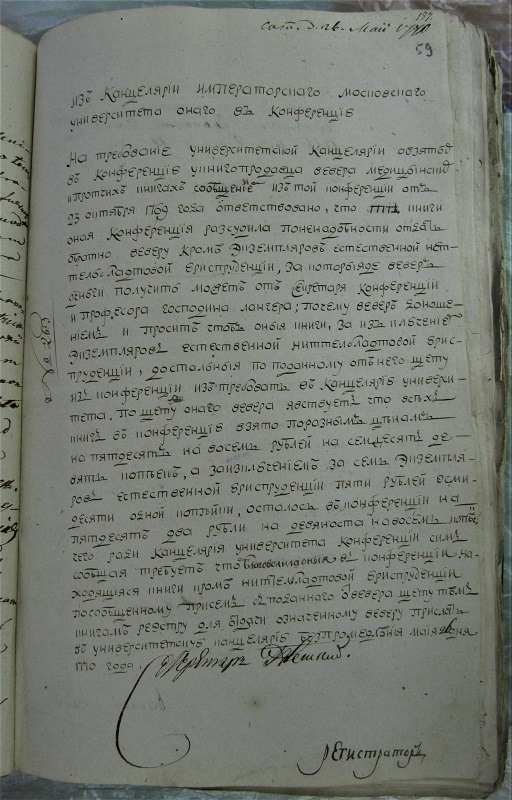 157.
Сот. д. 26. Маїя 1770
59
изъ Канцелярїи императорскаго московскаго
университета онаго въ Конференцїю
На требованїе университетской Канцелярїи о взятыхъ
въ Конференцїю у книгопродавца вевера медицынскихъ
и протчихъ книгахъ сообщенїемъ изъ той конференцїи отъ
23 октября 1769 года ответствовано, что книги
оная Конференцїя разсудила по ненадобности отдать
обратно веверу кромѣ экземпляровъ естественной нет-
тельбладтовой юриспруденцїи, за которыя де веверъ
деньги получить можетъ отъ секретаря Конференцїи
и професора господина лангера; почему веверъ доноше-
нїемъ и проситъ чтобъ оныя книги, за изключенїемъ
экземпляровъ естественной неттельбладтовой юрис-
пруденцїи, достальныя по поданному отъ него щету
изъ конференцїи истребовать въ Канцелярїю универси-
тета. по щету онаго вевера явствуетъ что всѣхъ
книгъ въ конференцїю взято по разнымъ цѣнамъ
на пятдесятъ на восемь рублей на семдесятъ де-
вять копѣекъ, а за изключенїемъ за семь экземпля-
ровъ естественной юриспруденцїи пяти рублей осми-
десяти одной копѣйки, осталось въ конференцїи на
пятдесятъ два рубли на девяносто на восемь копѣекъ
чего ради Канцелярїя университета Конференцїи симъ
сообщая требуетъ чтобъ благоволила оныя въ конференцїи на-
ходящїяся книги кромѣ неттельбладтовой юриспруденцїи
по сообщенному при семъ с поданнаго о вевера щету тѣмъ
книгамъ реэстру для отдачи означенному веверу прислать
въ университетскую канцелярїю безъ промедленїя маїя дня
1770 года
Секретарь
регистраторъ